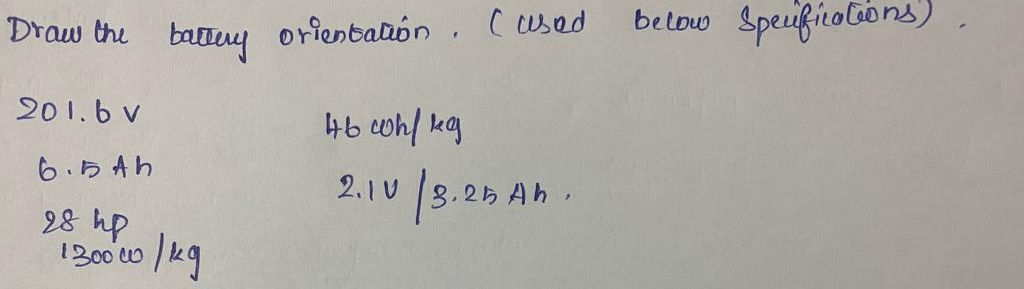 Draw the battery orientation. (used below specifications).
201.6 V
46 wh/kg
6.5 Ah
2.1V/3.25 Ah.
28 hp
1300 w/kg